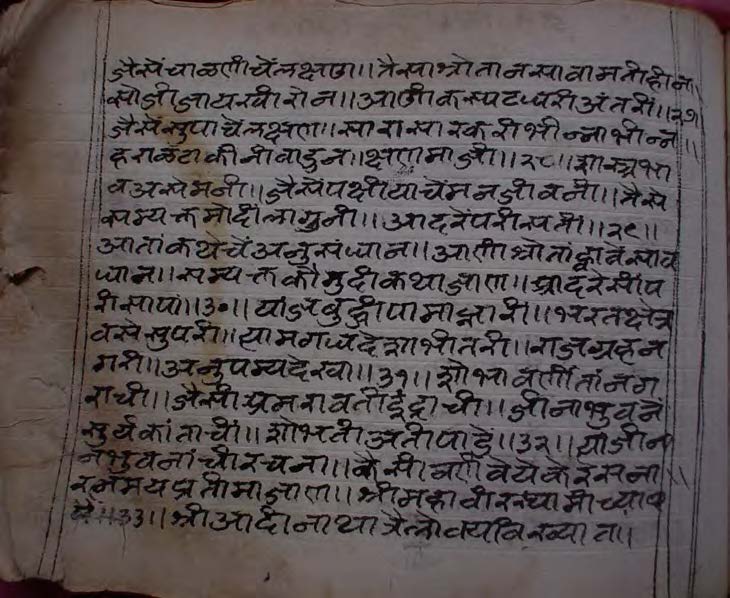 जैसें चाळणीचें लक्षण।। तैसा श्रोता नसावा मतीहीन
सोजी जाय रवी रोन।। आणी कस्पट धरी अंतरी।।२७
जैसें सुपाचें लक्षण।। सारासार करी भीन्नाभीन्न।।
हराळटाकी नीवाडुन।। क्षण माजी।।२८।। शास्त्रभा
व असे मनी।। जैसें पक्षीयाचें मन जीवनी।। तैसे
सम्यक्त मोदी लागुनी।। आदरें परीसती।।२९।।
आतां कथेचें अनुसंधान।। आणी श्रोतां व्हावें साव
धान।। सम्यक्त कौमुदी कथा जाण।। आदरेसीं प
रीसापां।।३०।। यां जंबुद्वीपामाझारी।। भरतक्षेत्र
वसे सुपरी।। या मगधदेशाभीतरी।। राजग्रहन
गरी।। अनुपम्य देखा।।३१।। शोभा वर्णीतां नग
राची।। जैसी अमरावती इंद्राची।। जीनाभुवनें
सुर्यकांताचीं।। शोभती अती पाडें।।३२।। या जीन
नभुवनांची रचना।। कैसी वर्णावे येके रसना।।
रत्नमय प्रतीमा जाणा।। श्रीमहावीरस्वामीच्या
।।३३।। श्रीआदीनाथा त्रैलोक्यविख्याता।